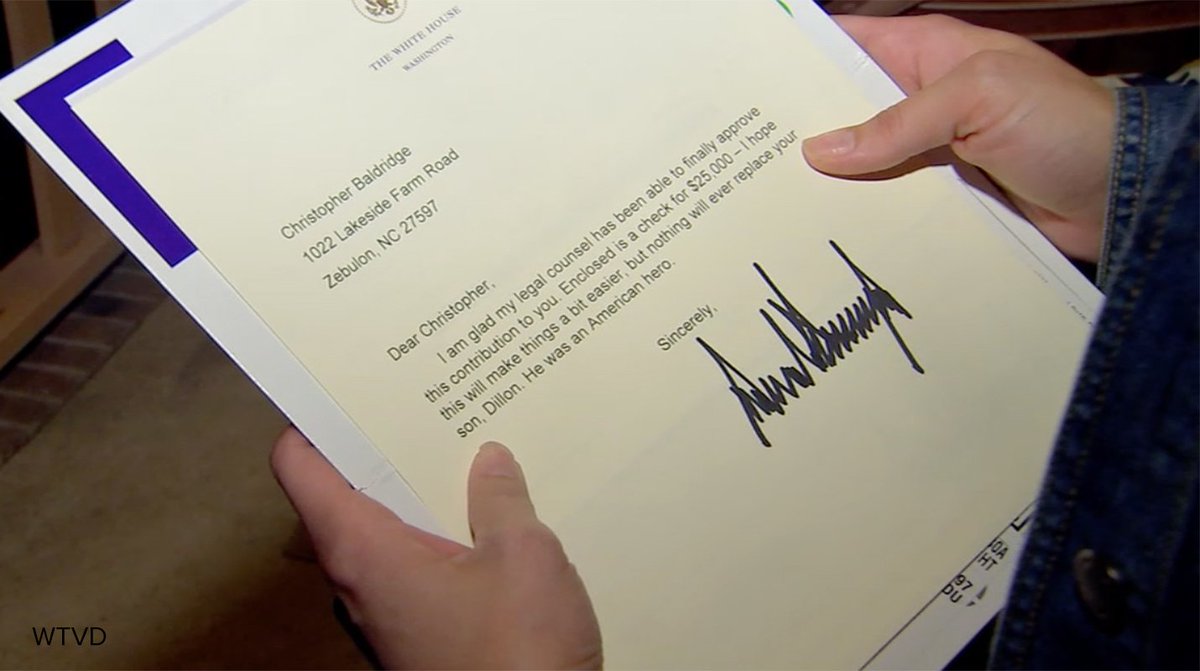 THE WHITE HOUSE
WASHINGTON
Christopher Baldridge
1022 Lakeside Farm Road
Zebulon, NC 27597
Dear Christopher,
I am glad my legal counsel has been able to finally approve
this contribution to you. Enclosed is a check for $25,000 – I hope
this will make things a bit easier, but nothing will ever replace your
son, Dillon. He was an American hero.
Sincerely,
WTVD